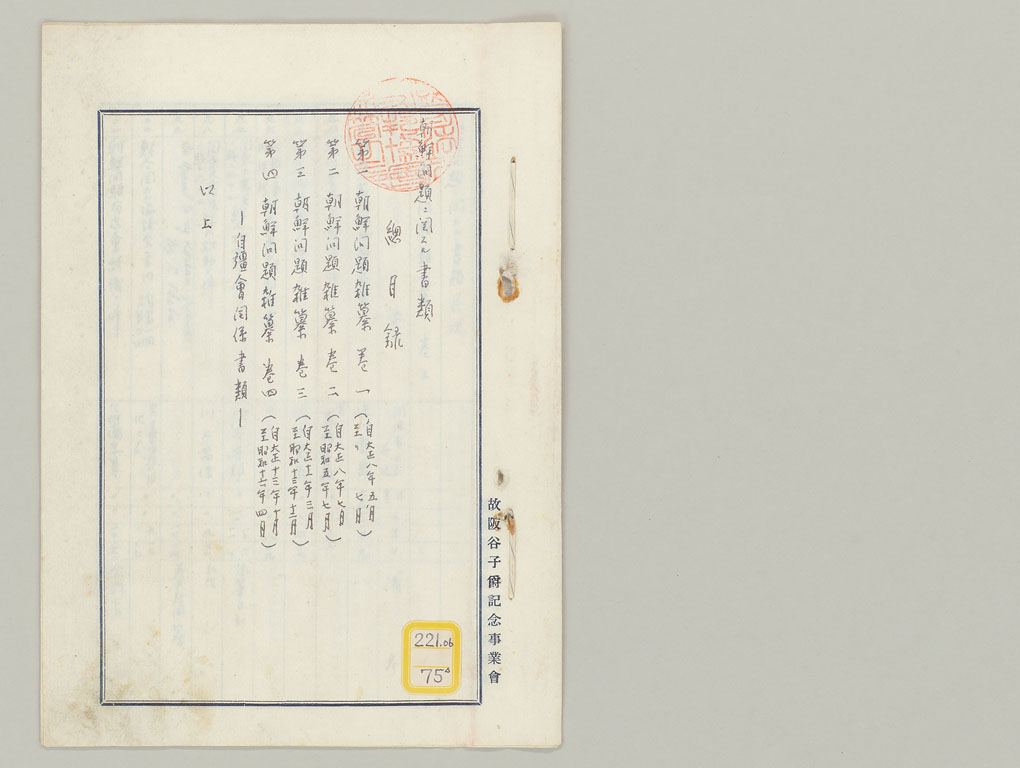 朝鮮问題ニ関スル書類
總目録
第一 朝鮮问題雑纂 巻一 (自大正八年五月 至〃 七月)
第二 朝鮮问題雑纂 巻二 (自大正八年七月 至昭和五年七月)
第三 朝鮮问題雑纂 巻三 (自大正十一年三月 至昭和十三年十二月)
第四 朝鮮问題雑纂 巻四 (自大正十三年十月 至昭和十六年四月)
―自彊會関係書類―
以上
故阪谷子爵記念事業會
221.06
75